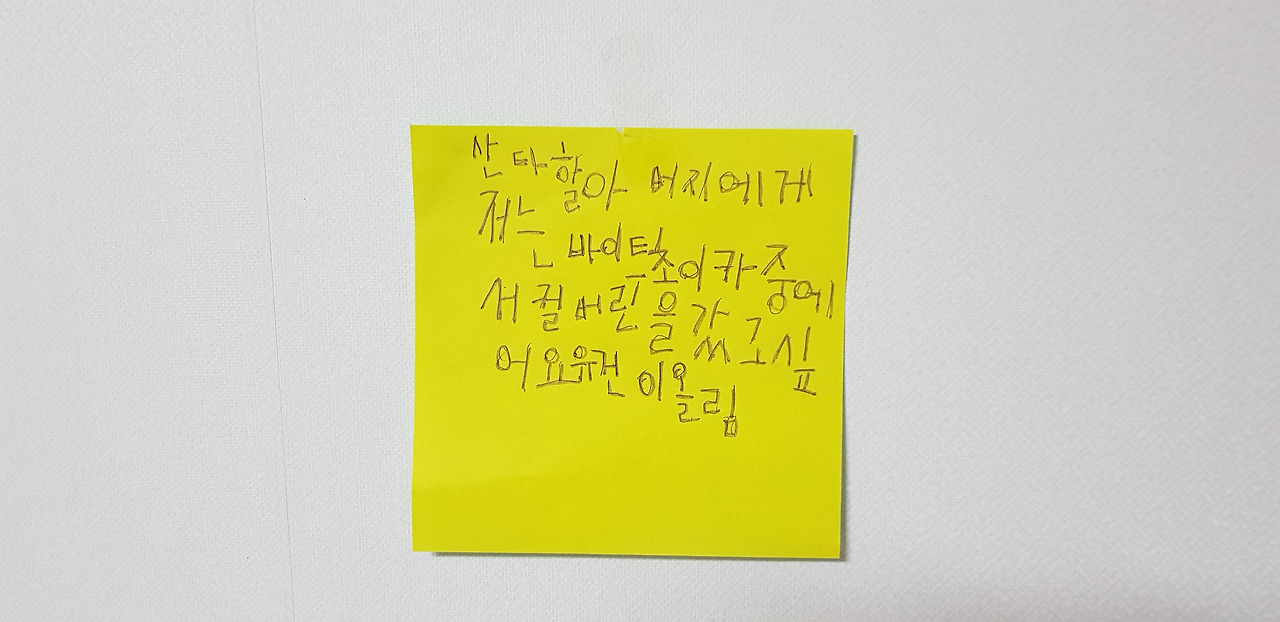 산타할아 버지에게
저는 바이트초이카 중에
서 컬버린을 갔고싶
어요유건 이올림